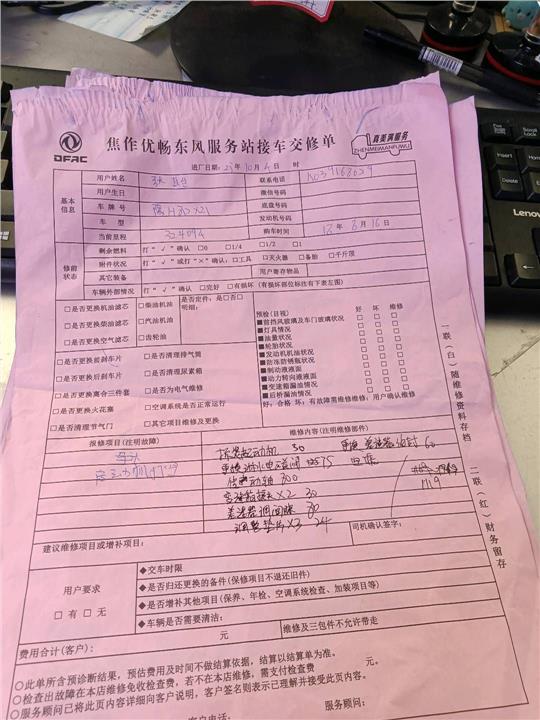 DFAC
焦作优畅东风服务站接车交修单
真美满服务
ZHENMEIMANFUWU
进厂日期：21年10月4日 时
基本信息
用户姓名
联系电话
用户生日
微信号码
车牌号
底盘号码
车型
发动机号码
当前里程
购车时间 18年6月16日
修前状态
剩余燃料 打“√”确认 □0 □1/4 □1/2 □1
附件状况 打“√”或打“×”确认：□工具 □灭火器 □备胎 □千斤顶
其它装备
用户寄存物品
车辆外部情况 打“√”确认 □完好 □有损坏（有损坏部位标注有下表左图）
□是否更换机油滤芯 □柴油机油 是否定件：是□否□
□是否更换柴油滤芯 □汽油机油 明细：
□是否更换空气滤芯 □齿轮油
□是否更换前刹车片 □是否清理排气筒
□是否更换后刹车片 □是否清理尿素箱
□是否更换离合三件套 □是否为电气维修
□是否更换火花塞 □空调系统是否正常运行
□是否清理节气门 □其它项目维修及更换
预检（目视） 好 坏 维修
■前挡风玻璃及车门玻璃状况
■灯具情况
■油量状况
■轮胎状况
■发动机机油状况
■防冻防锈瓶状况
■制动液液面
■动力转向液液面
■变速箱漏油情况
■后桥漏油情况
好：合格 坏：有故障需维修维修：用户确认维修
报修项目（注明故障）
维修内容（注明维修部件）
30
60
300
X2 30
调整垫片X3 24
1119
司机确认签字：
建议维修项目或增补项目：
用户要求
□有 □无
◆交车时限
◆是否归还更换的备件（保修项目不退还旧件）
◆是否增补其他项目（保养、年检、空调系统检查、加装项目等）
◆车辆是否需要清洁：
费用合计（客户）： 元
维修及三包件不允许带走
○此单所含预诊断结果，预估费用及时间不做结算依据，结算以结算单为准。
○检查出故障在本店维修免收检查费，若不在本店维修，需支付检查费 元。
○服务顾问已将此页内容详细向客户说明，客户签名则表示已理解并接受此页内容。
客户电话：
服务顾问：
一联（白）随维修资料存档
二联（红）财务留存
Lenovo